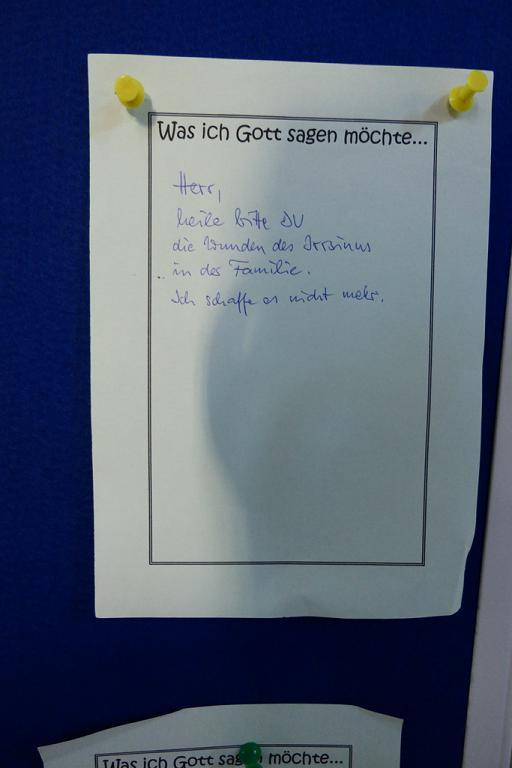 Was ich Gott sagen möchte...
Herr,
heile bitte DU
die Wunden des Irrsinns
in der Familie.
Ich schaffe es nicht mehr.
Was ich Gott sag möchte...